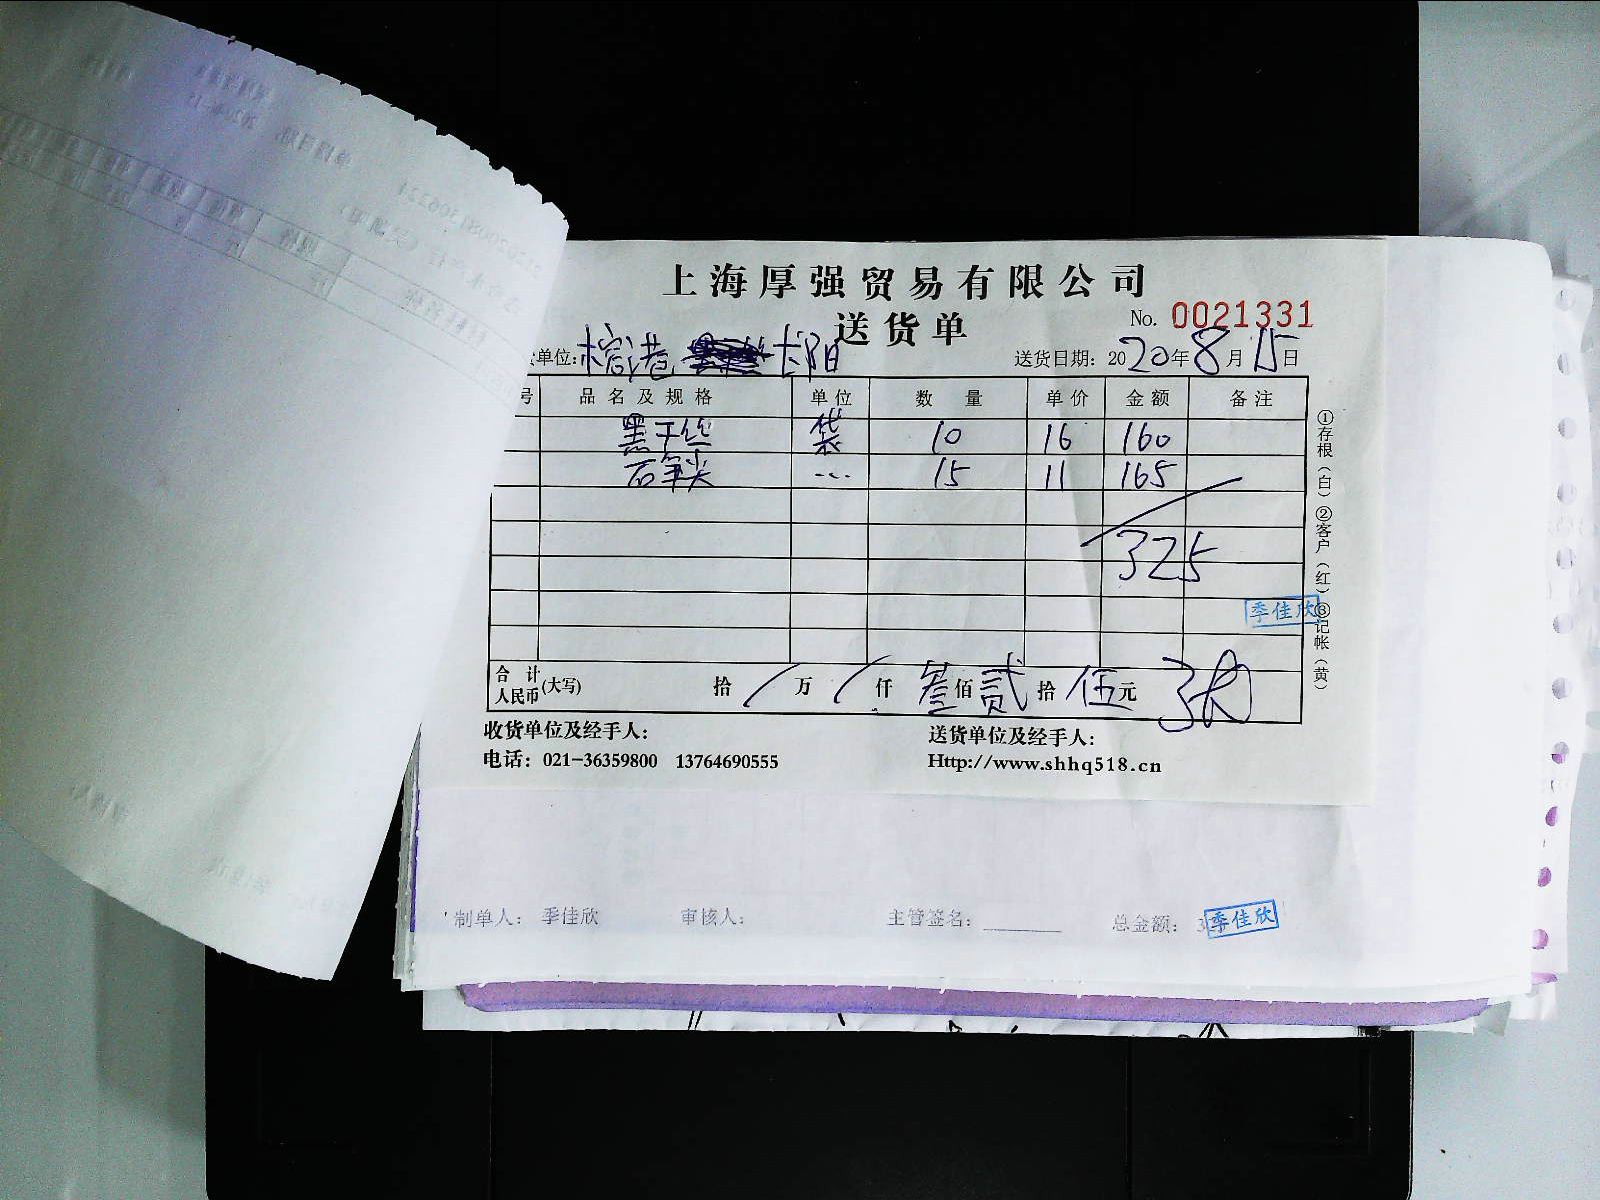 上海厚强贸易有限公司
送货单
No. 0021331
单位: 榕港 长阳
送货日期: 2020年8月15日
号 品名及规格 单位 数量 单价 金额 备注
黑干丝 袋 10 16 160
石笔尖 ... 15 11 165
325
季佳欣
合计人民币(大写) 拾 / 万 / 仟 叁佰贰拾伍元
收货单位及经手人:
送货单位及经手人:
电话: 021-36359800 13764690555
Http://www.shhq518.cn
①存根(白)②客户(红)③记帐(黄)
制单人: 季佳欣 审核人: 主管签名: 总金额: 3
季佳欣